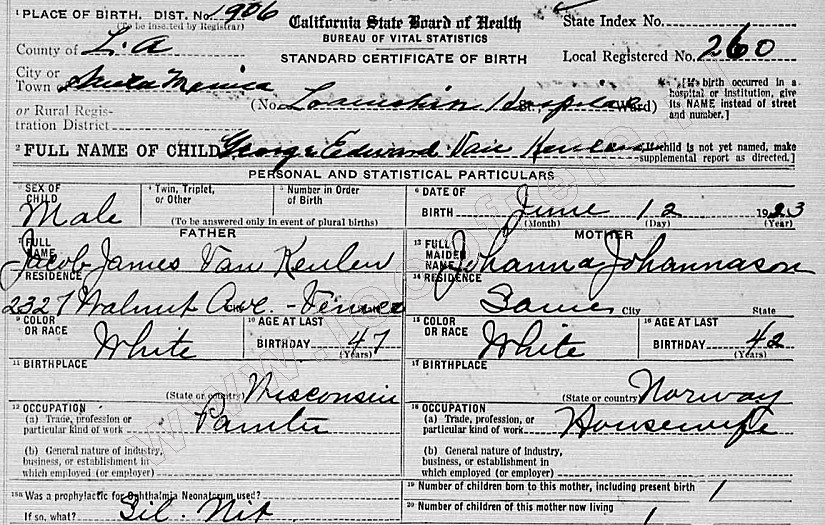 1 PLACE OF BIRTH. DIST. No. 1906
(To be inserted by Registrar)
California State Board of Health
BUREAU OF VITAL STATISTICS
STANDARD CERTIFICATE OF BIRTH
State Index No.
Local Registered No. 260
County of L.A
City or Town Santa Monica
or Rural Registration District
(No. Hospital Ward)
[If birth occurred in a hospital or institution, give its NAME instead of street and number.]
2 FULL NAME OF CHILD George Edward Van Keulen
[If child is not yet named, make supplemental report as directed.]
PERSONAL AND STATISTICAL PARTICULARS
3 SEX OF CHILD Male
4 Twin, Triplet, or Other
5 Number in Order of Birth
(To be answered only in event of plural births)
6 DATE OF BIRTH June 12 1923
(Month) (Day) (Year)
FATHER
7 FULL NAME Jacob James Van Keulen
RESIDENCE
2327 Walnut Ave. - Venice
9 COLOR OR RACE White
10 AGE AT LAST BIRTHDAY 47 (Years)
11 BIRTHPLACE
(State or country) Wisconsin
12 OCCUPATION
(a) Trade, profession or particular kind of work Painter
(b) General nature of industry, business, or establishment in which employed (or employer)
MOTHER
13 FULL MAIDEN NAME Johanna Johannason
14 RESIDENCE
Same City State
15 COLOR OR RACE White
16 AGE AT LAST BIRTHDAY 42 (Years)
17 BIRTHPLACE
(State or country) Norway
18 OCCUPATION
(a) Trade, profession or particular kind of work Housewife
(b) General nature of industry, business, or establishment in which employed (or employer)
18a Was a prophylactic for Ophthalmia Neonatorum used?
If so, what? Sil. Nit
19 Number of children born to this mother, including present birth 1
20 Number of children of this mother now living 1